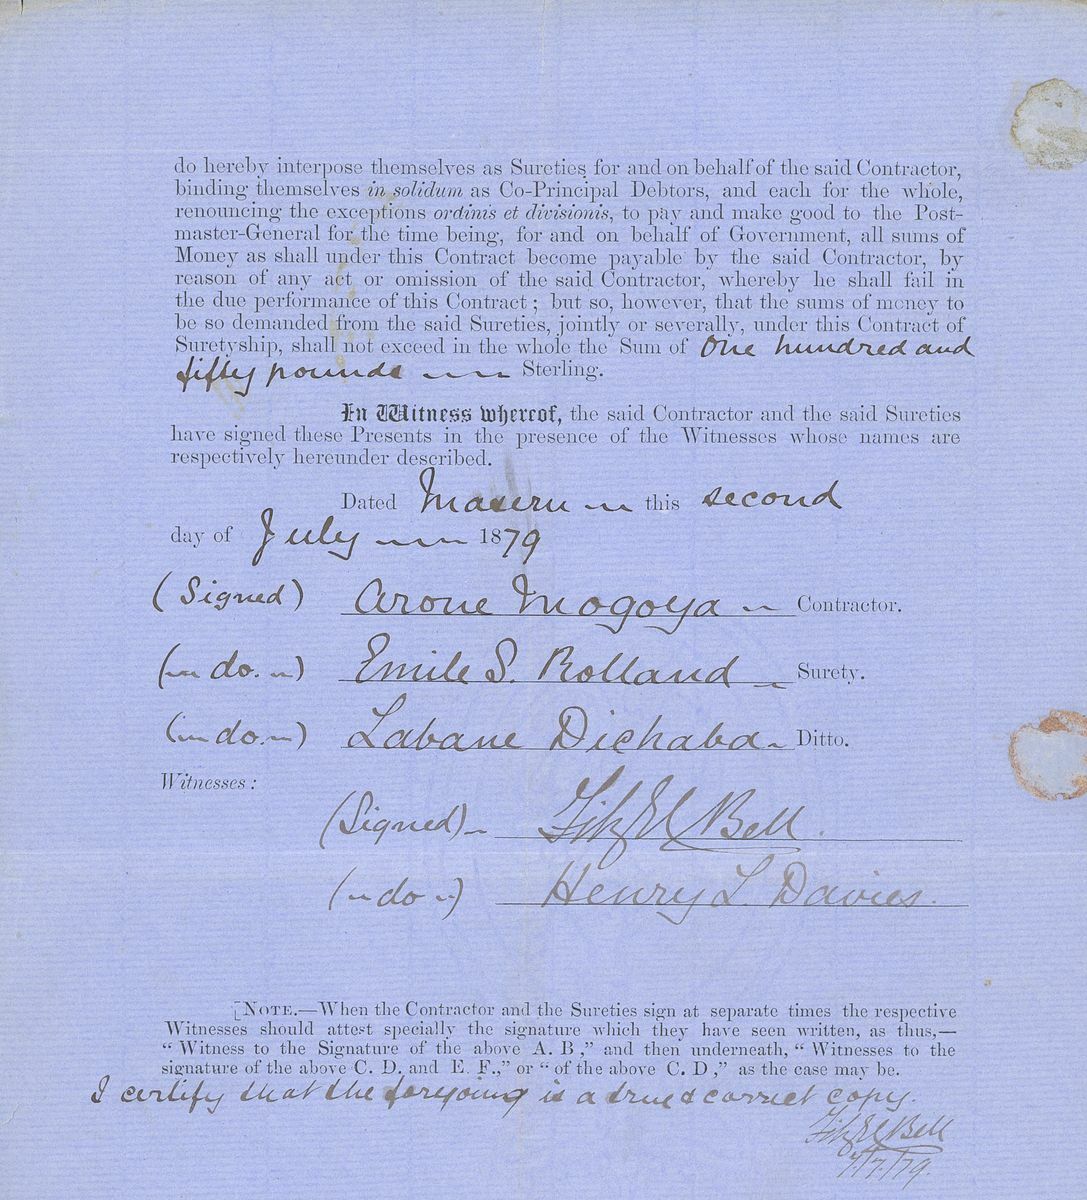 do hereby interpose themselves as Sureties for and on behalf of the said Contractor,
binding themselves in solidum as Co-Principal Debtors, and each for the whole,
renouncing the exceptions ordinis et divisionis, to pay and make good to the Post-
master-General for the time being, for and on behalf of Government, all sums of
Money as shall under this Contract become payable by the said Contractor, by
reason of any act or omission of the said Contractor, whereby he shall fail in
the due performance of this Contract; but so, however, that the sums of money to
be so demanded from the said Sureties, jointly or severally, under this Contract of
Suretyship, shall not exceed in the whole the Sum of One hundred and
fifty pounds Sterling.
In Witness whereof, the said Contractor and the said Sureties
have signed these Presents in the presence of the Witnesses whose names are
respectively hereunder described.
Dated Maseru this second
day of July 1879
(Signed) Arone Mogoya Contractor.
(do.) Emile S. Rolland Surety.
(do.) Labane Dichaba Ditto.
Witnesses:
(Signed) Bell.
(do) Henry L. Davies.
[NOTE.—When the Contractor and the Sureties sign at separate times the respective
Witnesses should attest specially the signature which they have seen written, as thus,—
“Witness to the Signature of the above A. B,” and then underneath, “Witnesses to the
signature of the above C. D. and E. F.,” or “of the above C. D,” as the case may be.
I certify that the foregoing is a true & correct copy.
Bell
7/7/79.